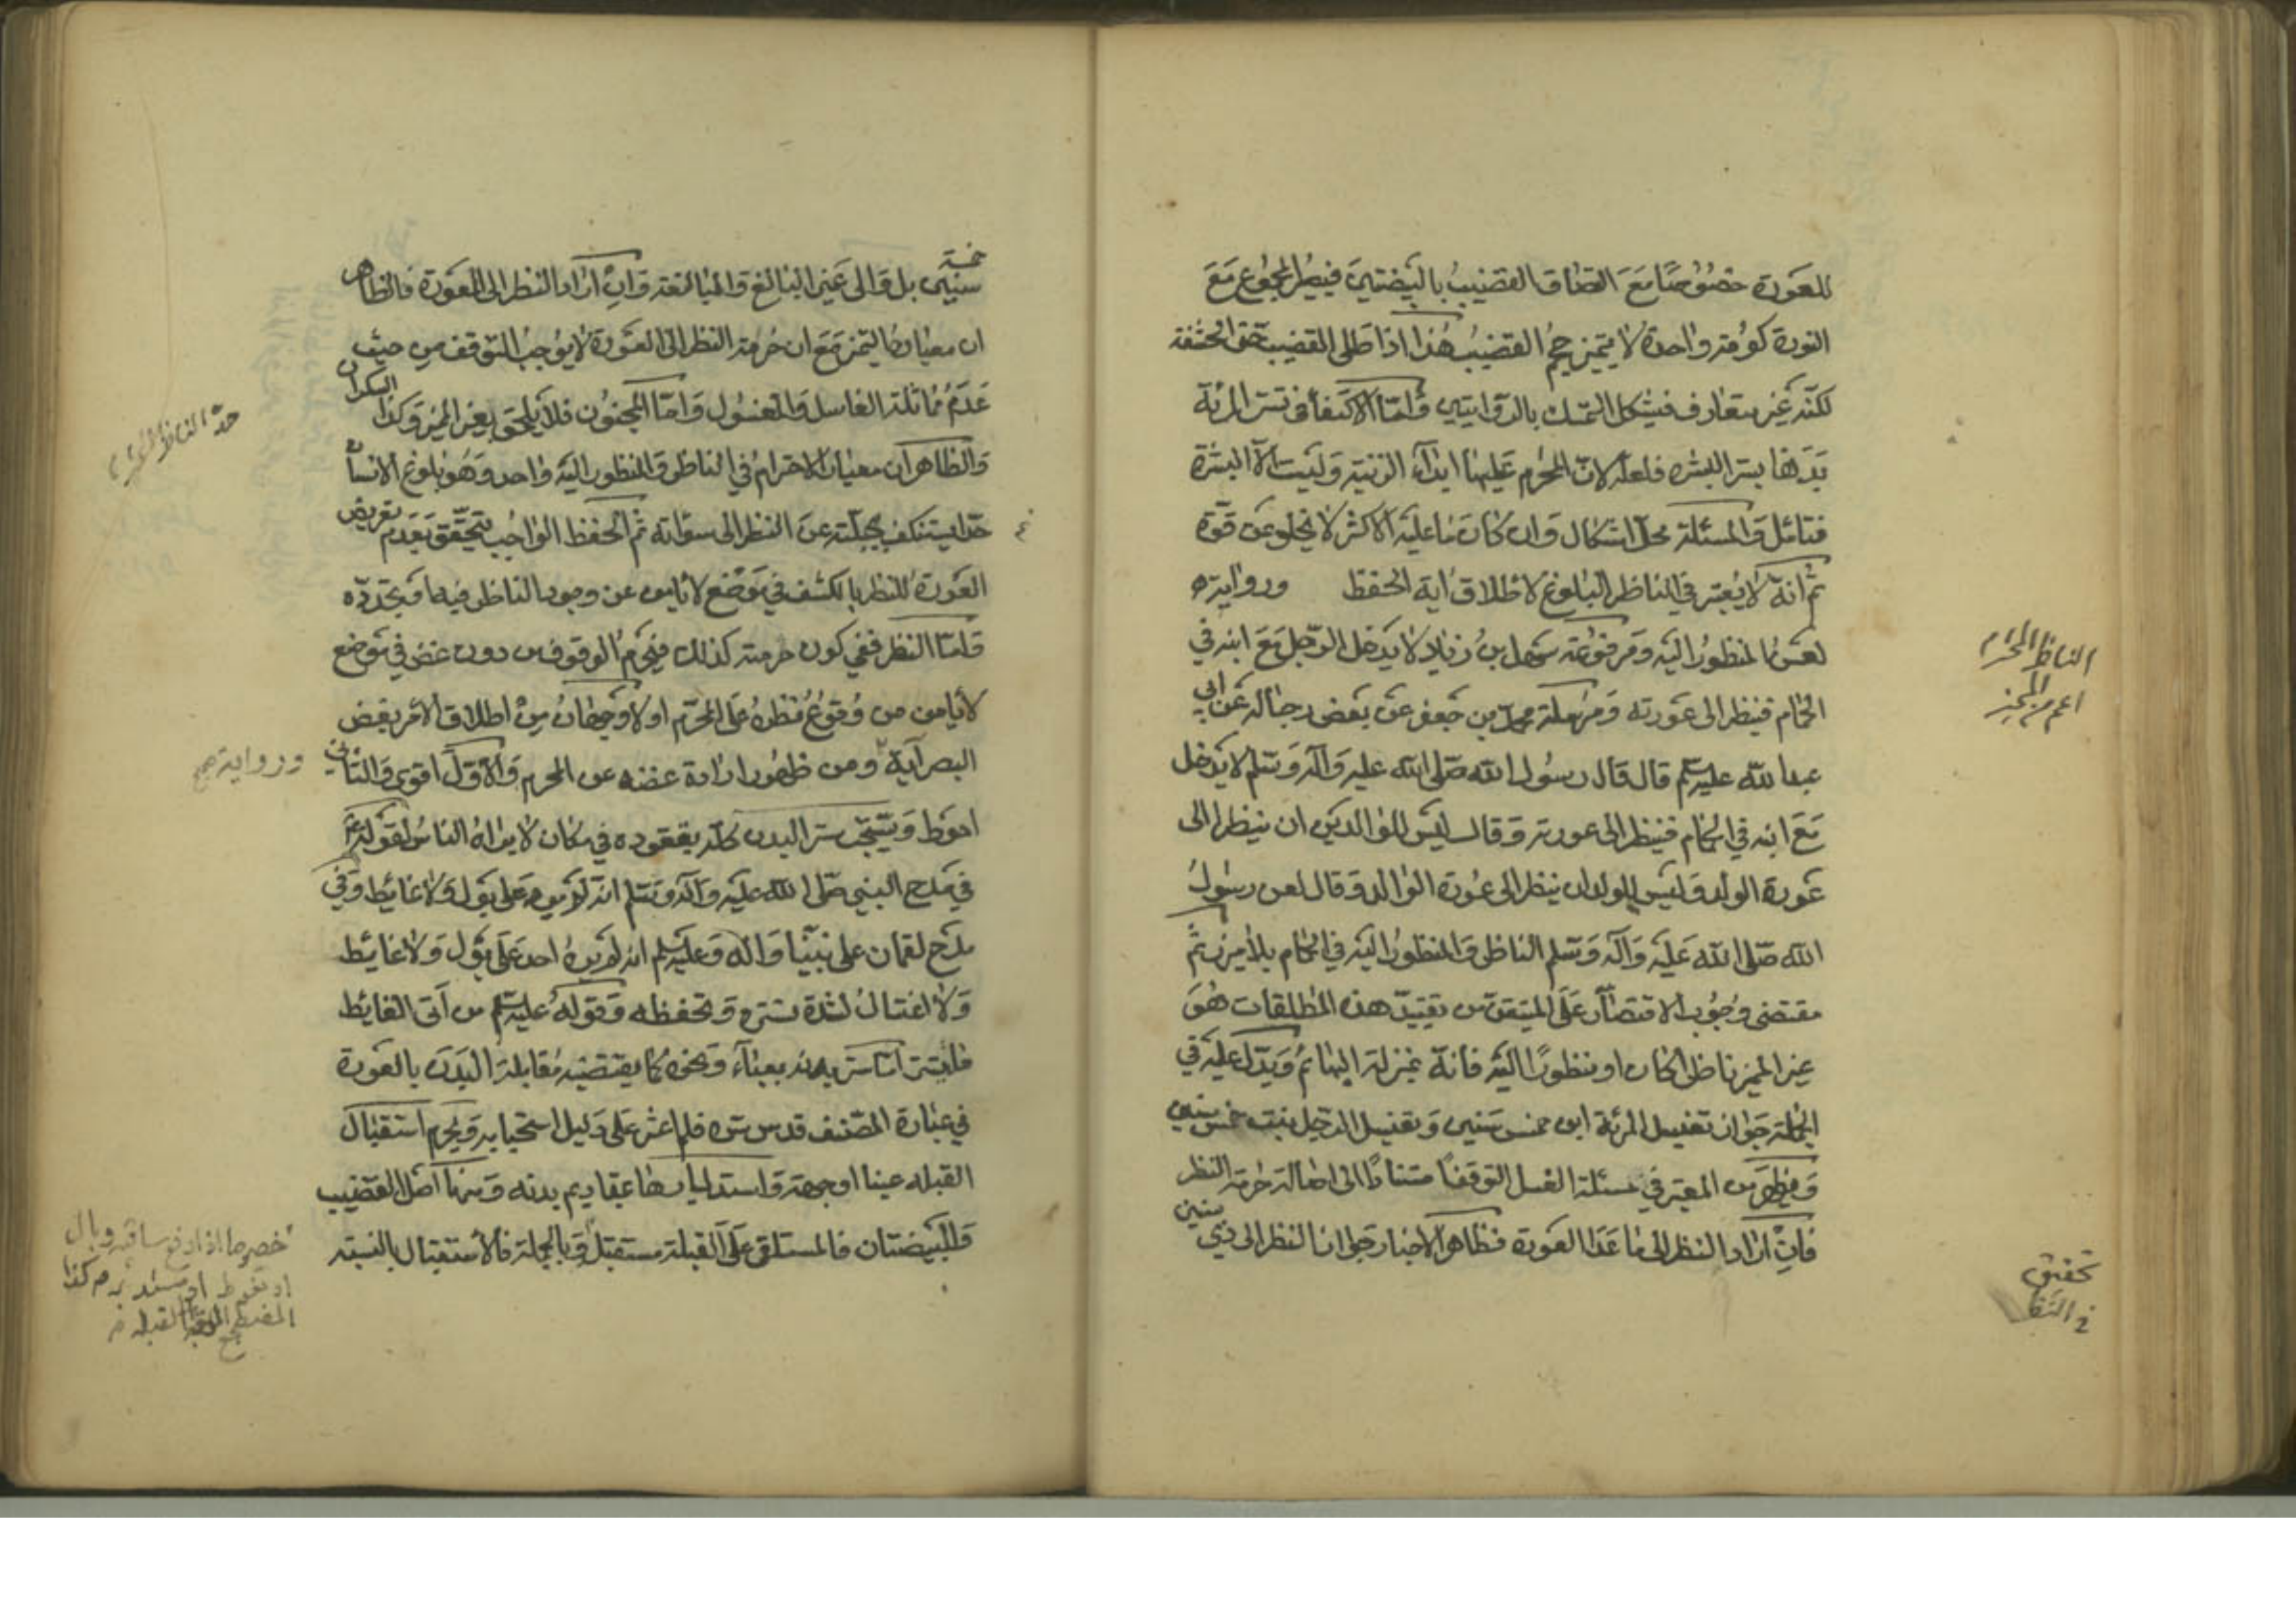 للعورة خصوصا مع التصاق القضيب بالبيضتين فيصير المجموع مع
النورة كورقة واحدة لا يتميز حجم القضيب هذا اذا طلى القضيب حتى الحشفة
لكنه غير متعارف فيشكل التمسك بالروايتين واما الاكتفاء في تستر المرئة
بدنها بستر البشره فلعله لان المحرم عليها ابداء الزنية وليست الا البشرة
فتامل والمسئلة محل اشكال وان كان ما عليه الاكثر لا يخلو عن قوة
ثم انه لا يعتبر في الناظر البلوغ لاطلاق اية الحفظ ورواية
لعن المنظور اليه ومرفوعة سهل بن زياد لا يدخل الرجل مع ابنه في
الحمام فينظر الى عورته ومرسلة محمد بن جعفر عن بعض رجاله عن ابي
عبد الله عليه السلم قال قال رسول الله صلى الله عليه وآله وسلم لا يدخل
مع ابنه في الحمام فينظر الى عورته وقال ليس للوالدين ان ينظر الى
عورة الولد وليس للولد ان ينظر الى عورة الوالد وقال لعن رسول
الله صلى الله عليه وآله وسلم الناظر والمنظور اليه في الحمام بلا ميزر ثم
مقتضى وجوب الاقتصار على المتيقن من تقييد هذه المطلقات هو
غير المميز ناظرا كان او منظورا اليه فانه بمنزلة البهائم ويدل عليه في
الجملة جواز تغسيل المرئة ابن خمس سنين وتغسيل الرجل بنت خمس سنين
ويظهر من المعتبر في مسئلة الغسل التوقف استنادا الى اصالة حرمة النظر
فان اراد النظر الى ما عدا العورة فظاهر الاخبار جواز النظر الى ذي سنين
الناظر المحترم
اعم من المميز
تحقيق
خمسة
سنين بل والى غير البالغ والبالغة وان اراد النظر الى العورة فالظاهر
ان معياره التميز مع ان حرمة النظر الى العورة لا يوجب التوقف من حيث
عدم مماثلة الغاسل والمغسول واما المجنون فلا يلحق بغير المميز وكذا السكران
والظاهر ان معيار الاحترام في الناظر والمنظور اليه واحد وهو بلوغ الانسان
حدا يستنكف بجبلته عن النظر الى سوءاته ثم الحفظ الواجب يتحقق بعدم تعريض
العورة للنظر بالكشف في موضع لا يامن عن وجود الناظر فيها وتجدده
واما النظر ففي كون حرمته كذلك فيحرم الوقوف من دون غض في موضع
لا يامن من وقوع نظره على المحرم اولا وجهان من اطلاق الامر بغض
البصر آية ورواية ومن ظهور ارادة غضه عن المحرم والاول اقوى والثاني
احوط ويستحب ستر البدن كله بقعوده في مكان لا يراه الناس لقوله
في مدح النبي صلى الله عليه وآله وسلم انه لم ير على بول ولا غائيط وفي
مدح لقمان على نبينا واله وعليه السلم انه لم يره احد على بول ولا غائيط
ولا اغتسال لشدة تستره وتحفظه وقوله عليه السلم من اتى الغايط
فليستتر اما ستر بدنه بعباء ونحوه كما يقتضيه مقابلة البدن بالعورة
في عبارة المصنف قدس سره فلم اعثر على دليل استحبابه ويحرم استقبال
القبله عينا او جهة واستدبارها بمقاديم بدنه ومنها اصل القضيب
والبيضتان فالمستلقى على القبلة مستقبل وبالجملة فالاستقبال بالنسبة
حد الناظر المحترم
ورواية صح